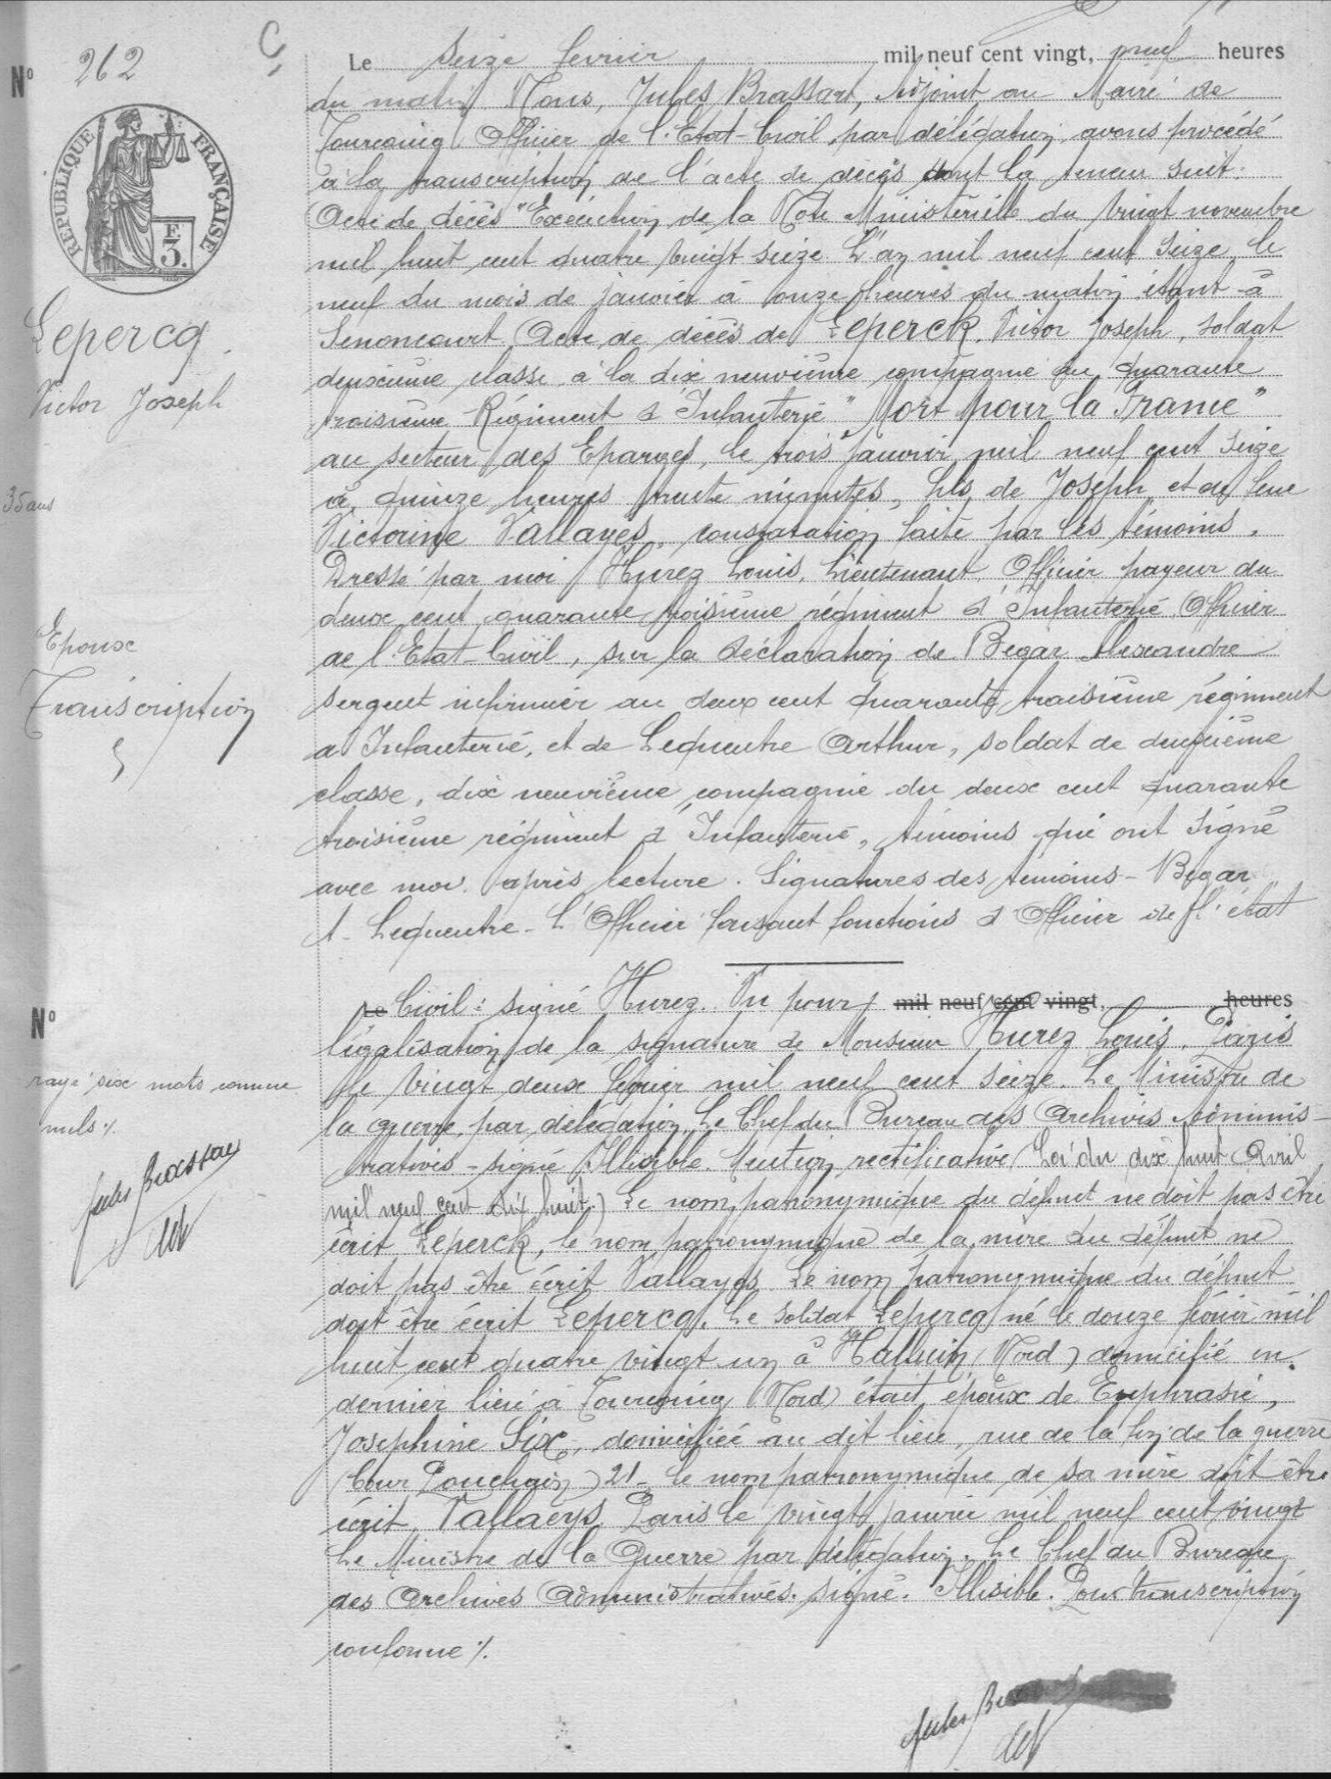 N° 262
C
RÉPUBLIQUE FRANÇAISE
F
3.
Lepercq
Victor Joseph
35 ans
Epoux
Transcription
Le seize février mil neuf cent vingt, neuf heures
du matin Nous, Jules Brassart, Adjoint au Maire de
Tourcoing Officier de l'Etat-Civil par délégation, avons procédé
à la transcription de l'acte de décès dont la teneur suit:
Acte de décès "Exécution de la Note Ministérielle du vingt novembre
mil huit cent quatre vingt seize L'an mil neuf cent seize, le
neuf du mois de janvier à onze heures du matin étant à
Senoncourt Acte de décès de Leperck, Victor Joseph, soldat
deuxième classe à la dix neuvième compagnie du quarante
troisième Régiment d'Infanterie "Mort pour la France"
au secteur des Eparges, le trois janvier mil neuf cent seize
à quinze heures trente minutes, fils de Joseph et de feue
Victorine Vallayes, constatation faite par les témoins.
Dressé par moi Hurez Louis, Lieutenant, Officier payeur du
deux cent quarante troisième régiment d'Infanterie Officier
de l'Etat-Civil, sur la déclaration de Begar Alexandre
sergent infirmier au deux cent quarante troisième régiment
d'Infanterie, et de Lequentre Arthur, soldat de deuxième
classe, dix neuvième compagnie du deux cent quarante
troisième régiment d'Infanterie, témoins qui ont signé
avec moi après lecture. Signatures des témoins - Begar
A. Lequentre - L'Officier faisant fonctions d'Officier de l'état
N°
Le Civil: signé Hurez. Vu pour mil neuf cent vingt, heures
légalisation de la signature de Monsieur Hurez Louis. Paris
le vingt deux février mil neuf cent seize. Le Ministre de
la guerre, par délégation, Le Chef du Bureau des Archives Adminis-
tratives - signé Illisible. Mention rectificative (Loi du dix huit Avril
mil neuf cent dix huit) Le nom patronymique du défunt ne doit pas être
écrit Leperck, le nom patronymique de la mère du défunt ne
doit pas être écrit Vallayes. Le nom patronymique du défunt
doit être écrit Lepercq. Le soldat Lepercq né le douze février mil
huit cent quatre vingt un à Halluin (Nord) domicilié en
dernier lieu à Tourcoing (Nord) était époux de Euphrasie,
Josephine Six, domiciliée au dit lieu, rue de la fin de la guerre
(Cour Pouchain) 21 - le nom patronymique de sa mère doit être
écrit Vallaeys. Paris le vingt janvier mil neuf cent vingt
Le Ministre de la Guerre par délégation. Le Chef du Bureau
des Archives Administratives. signé. Illisible. Pour transcription
conforme %.
rayé six mots comme
nuls %.
Jules Brassart
Jules Brassart